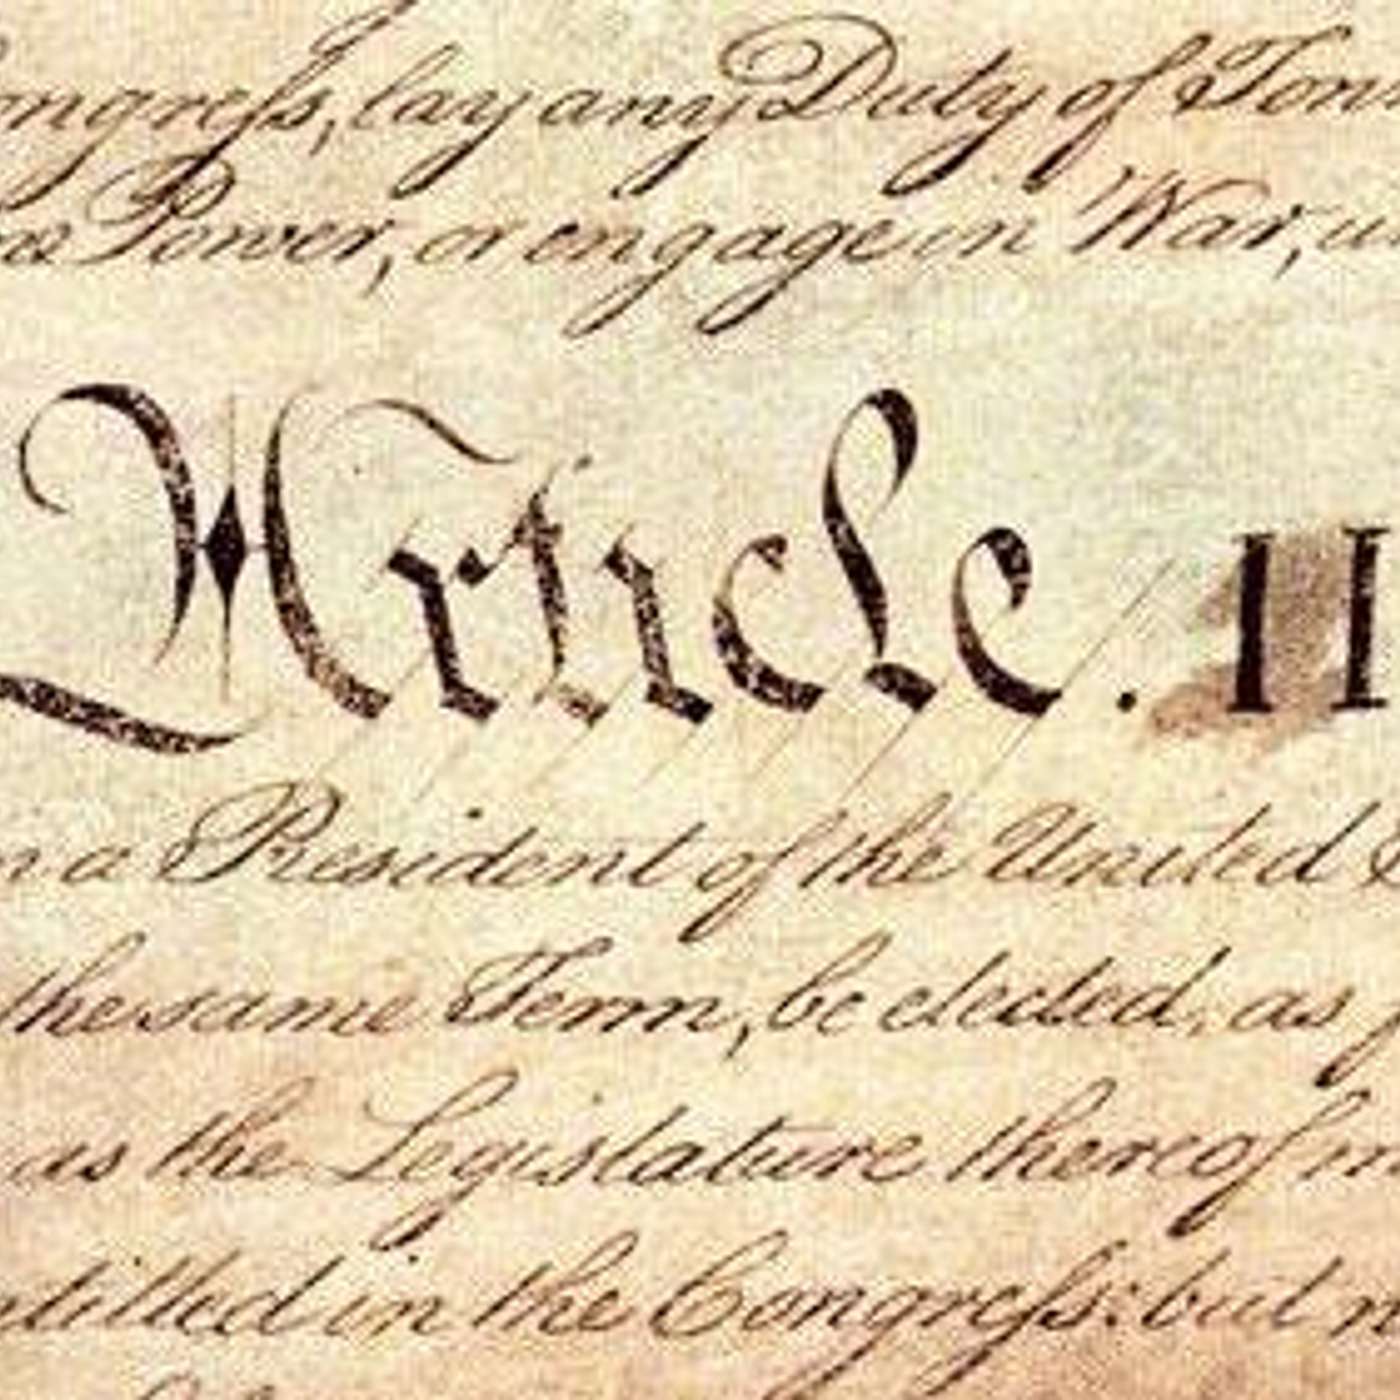 ongreſs, lay any Duty of Ton
Power, or engage in War, u
Article. II
n a President of the United S
the same Term, be elected, as
as the Legislature thereof m
ntitled in the Congreſs: but n